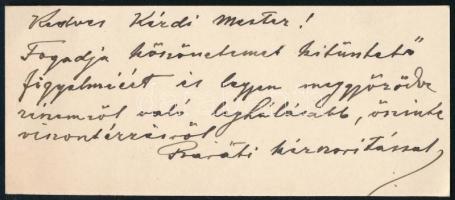 Kedves Kérdi Mester!
Fogadja köszönetemet kitüntető
figyelméért és legyen meggyőződve
részemről való leghálásabb, őszinte
viszontérzésről
Baráti kézszorítással